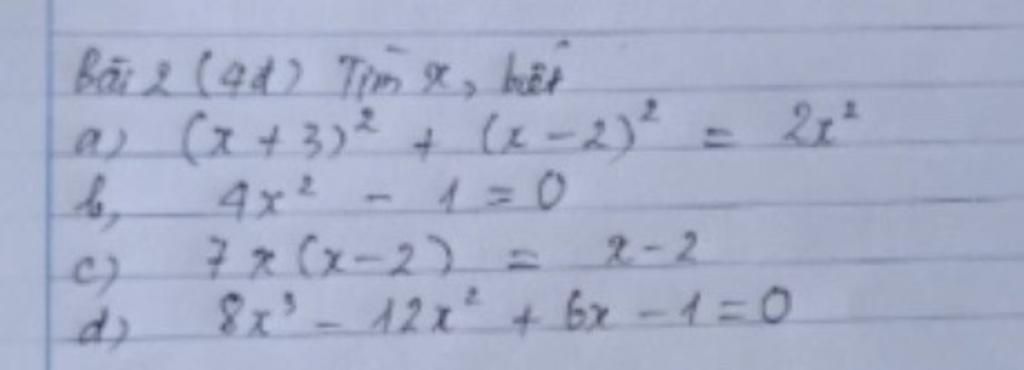 Bài 2 (4đ) Tìm x, biết
a) (x + 3)² + (x - 2)² = 2x²
b, 4x² - 1 = 0
c) 7x(x - 2) = x - 2
d) 8x³ - 12x² + 6x - 1 = 0